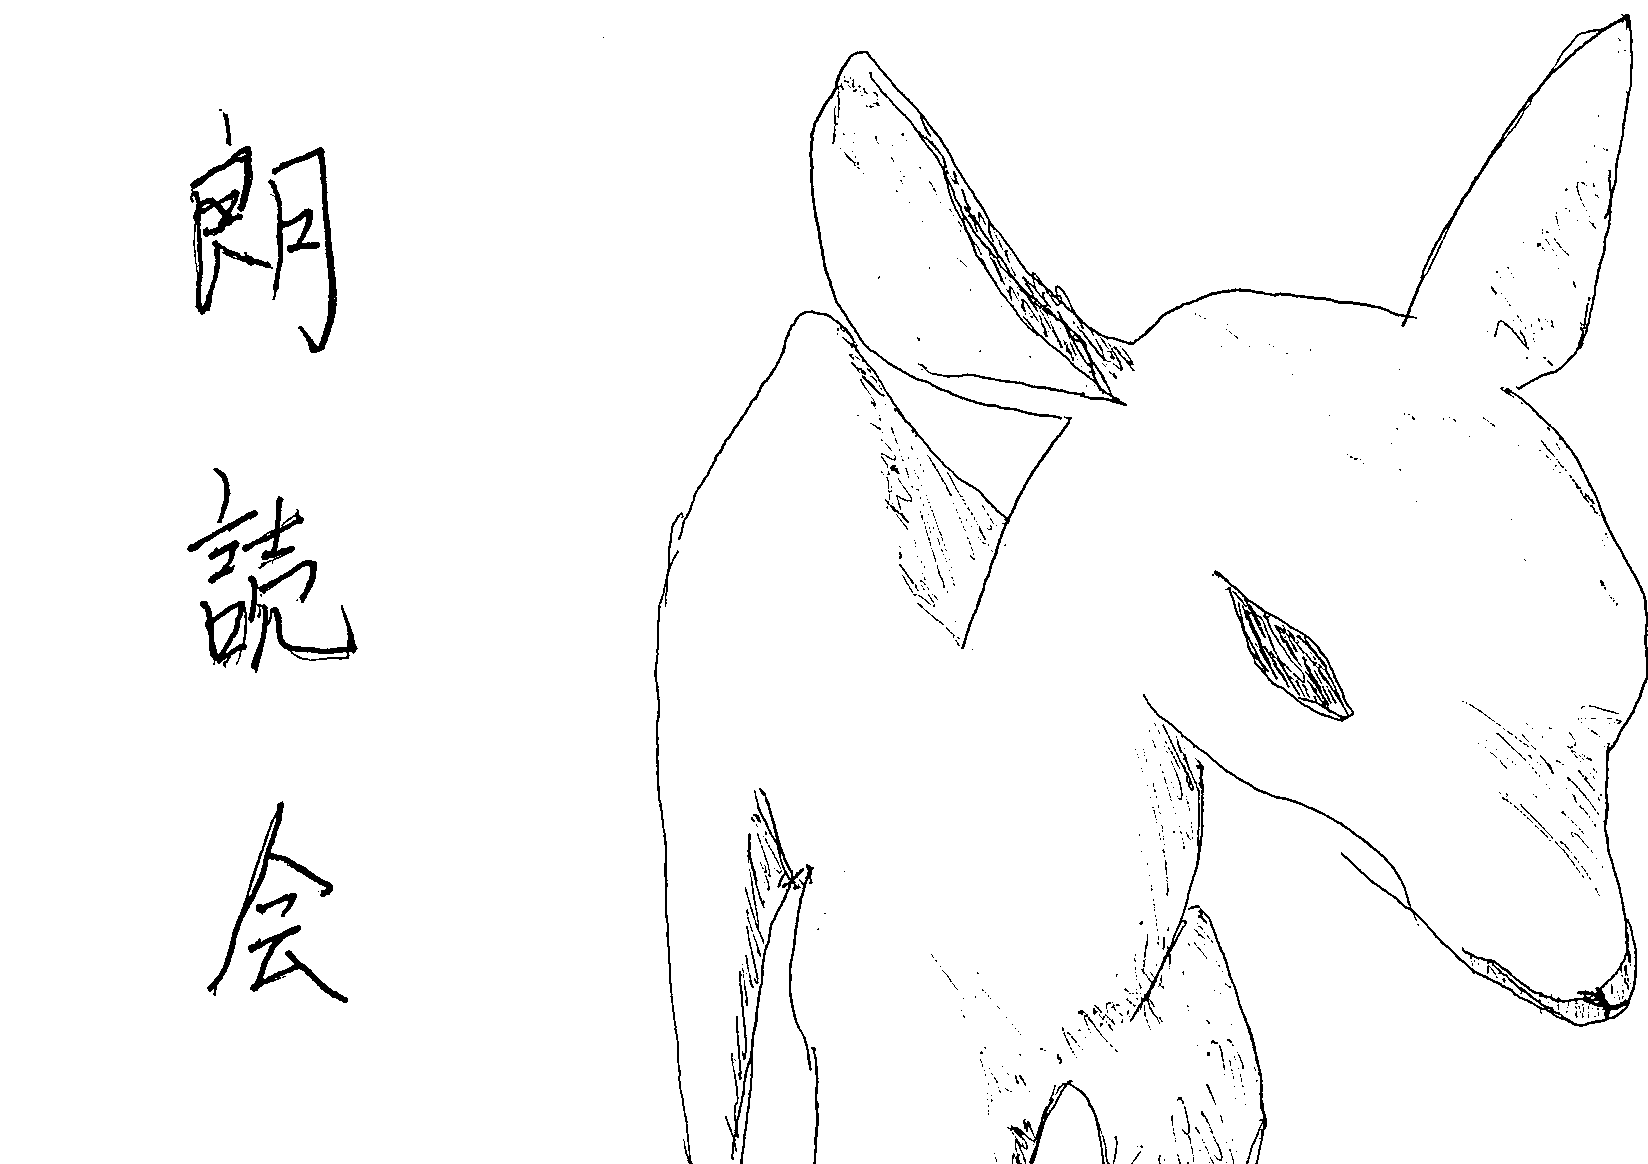 朗読会